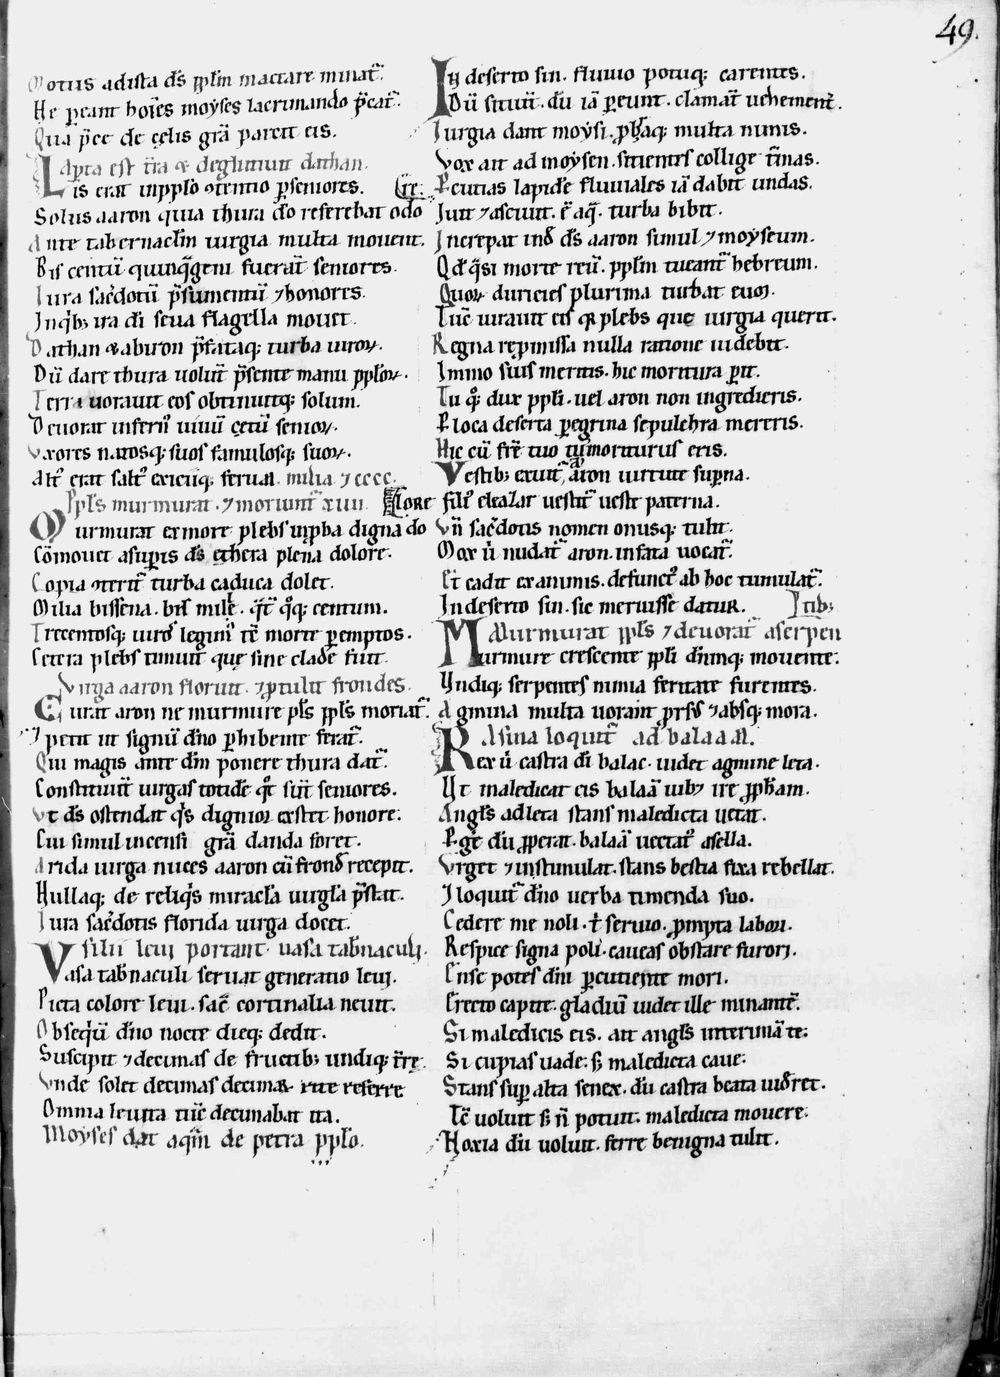 49.
Motus ad ista ds pplm mactare minat.
Ne pereant hoies moyses lacrimando pcat.
Qua pce de celis gra parcit eis.
Aperta est tra & deglutiuit dathan.
Lis erat in pplo &tentio p seniores. &re.
Solus aaron quia thura do referebat odo
Ante tabernaclm iurgia multa mouent.
Bis centu quinqgeni fuerat seniores.
Iura sacdotu psumentu ⁊ honores.
Inqb; ira di seua flagella mouet.
Dathan & abiron pfataq; turba uiroꝝ.
Du dare thura uolut psente manu pploꝝ.
Terra uorauit eos obtinuitq; solum.
Deuorat inferii uiuu cetu senioꝝ.
Uxores natosq; suos famulosq; suoꝝ.
milia ⁊ cccc.
Ppls murmurat. ⁊ moriunt xiiii.
Murmurat ex morte plebs upba digna dolore
Comouet a supis ds ethera plena dolore.
Copia &terit turba caduca dolet.
Milia bissena. bis mille. qt qq; centum.
Trecentosq; uiros legim te morte peremptos.
Cetera plebs timuit que sine clade fuit.
Virga aaron floruit. ⁊ ptulit frondes.
Curat aron ne murmure pls ppls moriat.
⁊ petit ut signu dno phibente ferat.
Qui magis ante dm ponere thura dat.
Constituit uirgas totide qt sut seniores.
Vt ds ostendat qs dignior extet honore.
Cui simul incensi gra danda foret.
Arida uirga nuces aaron cu frond recepit.
Nullaq; de reliqs miracla uirgla pstat.
Iura sacdotis florida uirga docet.
Filii leui portant uasa tabnaculi.
Vasa tabnaculi seruat generatio leui.
Picta colore leui. sac cortinalia neuit.
Obsequ dno nocte dieq; dedit.
Suscipit ⁊ decimas de fructib; undiq; tre.
Vnde solet decimas decimaꝝ rite referre
Omnia leuita tuc decimabat ita.
Moyses dat aqm de petra pplo.
In deserto sin. fluuio potuq; carentes.
Du sitiut. du ia pereunt. clamat uehement.
Iurgia dant moysi. phaq; multa nimis.
Vox ait ad moysen. sitientes collige turmas.
Pcutias lapide fluuiales ia dabit undas.
Iuit ⁊ asciuit. e aq. turba bibit.
Increpat ind ds aaron simul ⁊ moyseum.
Qd qsi morte reu. pplm tueant hebreum.
Quoꝝ duricies plurima turbat euoꝝ.
Tuc iurauit eis qꝛ plebs que iurgia querit.
Regna repmissa nulla ratione uidebit.
Immo suis meritis. hic moritura pit.
Tu q; dux ppli. uel aron non ingredieris.
Ploca deserta peregrina sepulchra mereris.
Hic cu fre tuo tu moriturus eris.
Vestib; exuit aron uirtute supna.
fili eleazar uestit ueste paterna.
Vn sacdotis nomen onusq; tulit.
Mox u nudat aron. infata uocat.
Et cadit exanimis. defunct ab hoc tumulat.
In deserto sin. sic meruisse datur. tib;
Murmurat ppls ⁊ deuorat a serpen
Murmure crescente ppli dnmq; mouente.
Undiq; serpentes nimia feritate furentes.
Agmina multa uorant prsus ⁊ absq; mora.
Asina loquit ad balaam.
Rex u castra di balac. uidet agmine leta.
Ut maledicat eis balaa iub; ire ppham.
Angls ad leta stans maledicta uetat.
Pgit du pperat. balaa uectat asella.
Vrget ⁊ instimulat. stans bestia fixa rebellat.
⁊ loquit dno uerba timenda suo.
Cedere me noli. t seruio. pmpta labori.
Respice signa poli. caueas obstare furori.
Ense potes dni pcutiente mori.
Erecto capite. gladiu uidet ille minante.
Si maledicis eis. ait angls interimate.
Si cupias uade. s; maledicta caue.
Stans sup alta senex. du castra beata uidret.
Te uoluit s; n potuit. maledicta mouere.
Noxia du uoluit. ferre benigna tulit.